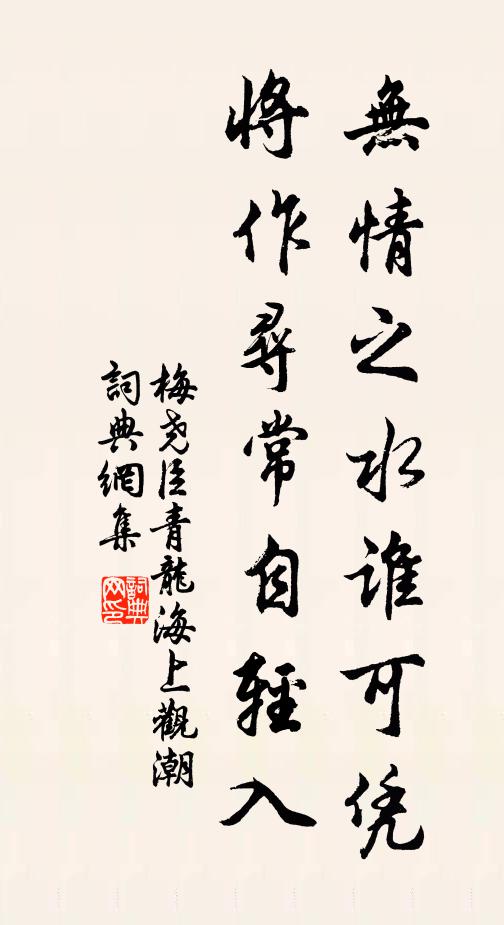 無情之水誰可凭
將作尋常自輕入
梅堯臣青龍海上觀潮
詞典網集
詞典网印